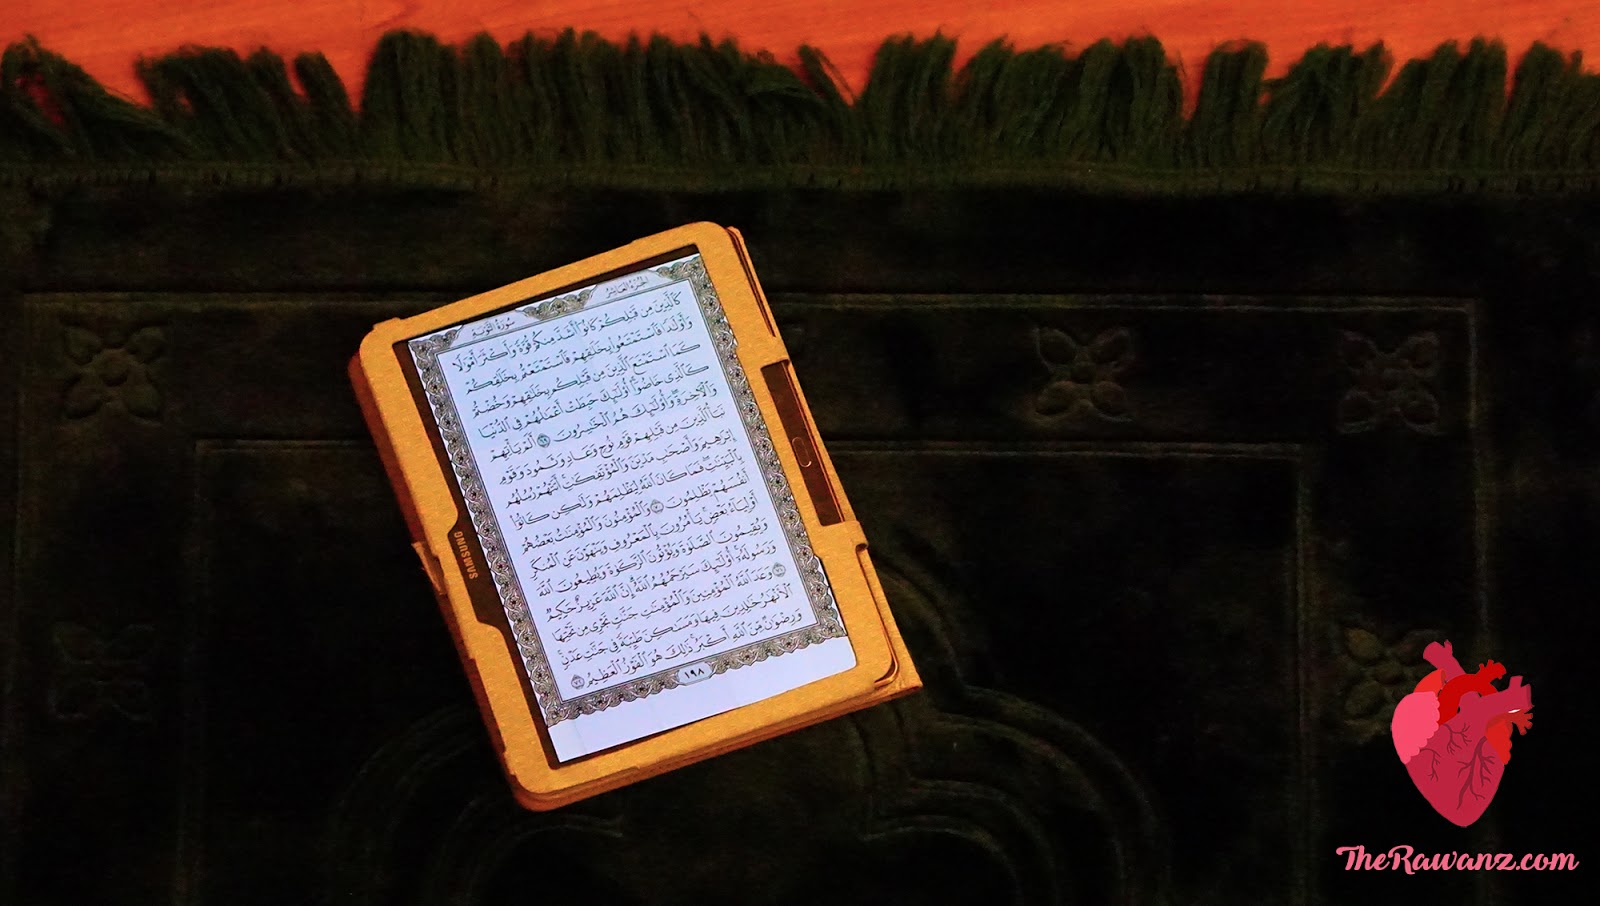 الجزء العاشر
سورة التوبة
كَٱلَّذِينَ مِن قَبْلِكُمْ كَانُوٓا۟ أَشَدَّ مِنكُمْ قُوَّةً وَأَكْثَرَ أَمْوَٰلًا
وَأَوْلَٰدًا فَٱسْتَمْتَعُوا۟ بِخَلَٰقِهِمْ فَٱسْتَمْتَعْتُم بِخَلَٰقِكُمْ
كَمَا ٱسْتَمْتَعَ ٱلَّذِينَ مِن قَبْلِكُم بِخَلَٰقِهِمْ وَخُضْتُمْ
كَٱلَّذِى خَاضُوٓا۟ ۚ أُو۟لَٰٓئِكَ حَبِطَتْ أَعْمَٰلُهُمْ فِى ٱلدُّنْيَا
وَٱلْءَاخِرَةِ ۖ وَأُو۟لَٰٓئِكَ هُمُ ٱلْخَٰسِرُونَ ٦٩ أَلَمْ يَأْتِهِمْ
نَبَأُ ٱلَّذِينَ مِن قَبْلِهِمْ قَوْمِ نُوحٍ وَعَادٍ وَثَمُودَ وَقَوْمِ
إِبْرَٰهِيمَ وَأَصْحَٰبِ مَدْيَنَ وَٱلْمُؤْتَفِكَٰتِ ۚ أَتَتْهُمْ رُسُلُهُم
بِٱلْبَيِّنَٰتِ ۖ فَمَا كَانَ ٱللَّهُ لِيَظْلِمَهُمْ وَلَٰكِن كَانُوٓا۟
أَنفُسَهُمْ يَظْلِمُونَ ٧٠ وَٱلْمُؤْمِنُونَ وَٱلْمُؤْمِنَٰتُ بَعْضُهُمْ
أَوْلِيَآءُ بَعْضٍ ۚ يَأْمُرُونَ بِٱلْمَعْرُوفِ وَيَنْهَوْنَ عَنِ ٱلْمُنكَرِ
وَيُقِيمُونَ ٱلصَّلَوٰةَ وَيُؤْتُونَ ٱلزَّكَوٰةَ وَيُطِيعُونَ ٱللَّهَ
وَرَسُولَهُۥٓ ۚ أُو۟لَٰٓئِكَ سَيَرْحَمُهُمُ ٱللَّهُ ۗ إِنَّ ٱللَّهَ عَزِيزٌ حَكِيمٌ ٧١
وَعَدَ ٱللَّهُ ٱلْمُؤْمِنِينَ وَٱلْمُؤْمِنَٰتِ جَنَّٰتٍ تَجْرِى مِن تَحْتِهَا
ٱلْأَنْهَٰرُ خَٰلِدِينَ فِيهَا وَمَسَٰكِنَ طَيِّبَةً فِى جَنَّٰتِ عَدْنٍ ۚ
وَرِضْوَٰنٌ مِّنَ ٱللَّهِ أَكْبَرُ ۚ ذَٰلِكَ هُوَ ٱلْفَوْزُ ٱلْعَظِيمُ ٧٢
١٩٨
SAMSUNG
TheRawanz.com